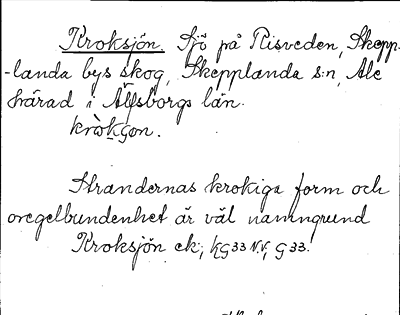 Kroksjön. Sjö på Risveden, Skepp-
-landa bys skog, Skepplanda s:n, Ale
härad i Älfsborgs län.
Strandernas krokiga form och
oregelbundenhet är väl namngrund
Kroksjön ek; KG33 N.V, G33.